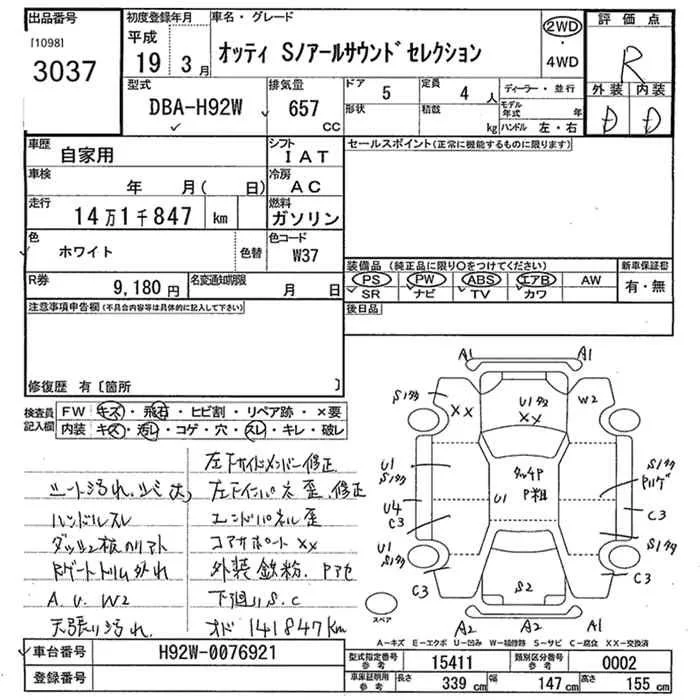 出品番号 初度登録年月 車名・グレード 2WD 評価点
[1098] 平成 ・ R
3037 19 3月 オッティ Sノアールサウンドセレクション 4WD
型式 排気量 ドア 5 定員 4人 ディーラー・並行 外装 内装
DBA-H92W 657 CC 形状 積載 kg モデル年式 年 D D
ハンドル 左・右
車歴 自家用 シフト IAT セールスポイント(正常に機能するものに限ります)
車検 年 月( 日) 冷房 AC
走行 14万1千847 km 燃料 ガソリン
色 ホワイト 色替 色コード W37
装備品 (純正品に限り○をつけてください) 新車保証書
R券 9,180円 名変通知期限 月 日 PS PW ABS エアB AW 有・無
SR ナビ TV カワ
注意事項申告欄(不具合内容等は具体的に記入して下さい) 後日品
修復歴 有〔箇所 〕
検査員記入欄 FW キズ・飛石・ヒビ割・リペア跡・×要
内装 キズ・汚レ・コゲ・穴・スレ・キレ・破レ
左右サイドメンバー修正
シート汚れ、シミ大 左右インパネ歪、修正
ハンドルスレ エンドパネル歪
ダッシュ板のリアト コアサポートXX
Rゲートトリム外れ 外装鉄粉、Pアセ
A、U、W2 下廻りS、C
天張り汚れ オド 141847km
A1 A1
S1タタ XX U1タタ XX W2
U1 S1タタ タッチP P粗 U1 S1タタ Pハゲ
U4 C3 C3
U1 S1タタ S1タタ
C3 S2 C3
スペア A2 A2 A1
A-キズ E-エクボ U-凹み W-補修跡 S-サビ C-腐食 XX-交換済
車台番号 H92W-0076921 型式指定番号 参考 15411 類別区分番号 参考 0002
登録番号 車庫証明用 参考 長さ 339cm 幅 147cm 高さ 155cm